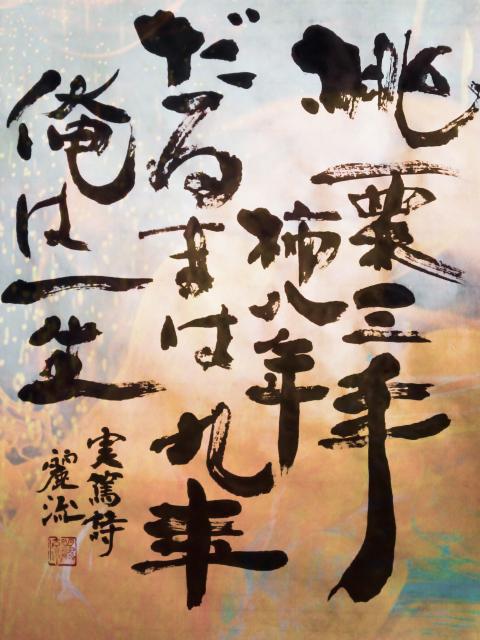 桃栗三年
柿八年
だるまは九年
俺は一生
実篤詩
麗流